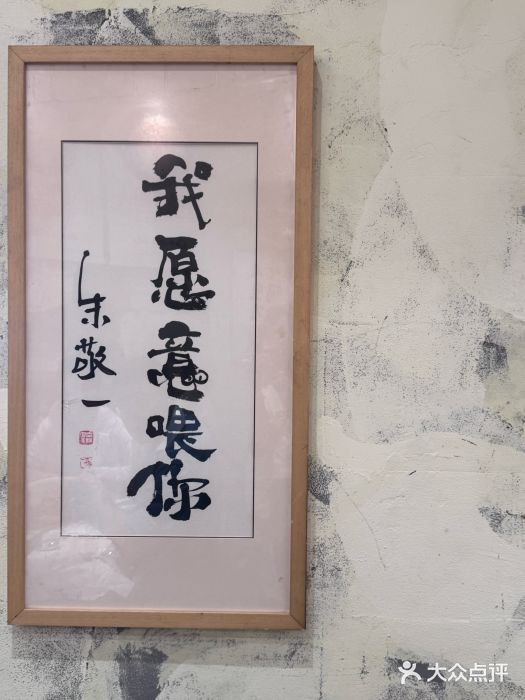 我愿意喂你
朱敬一
大众点评